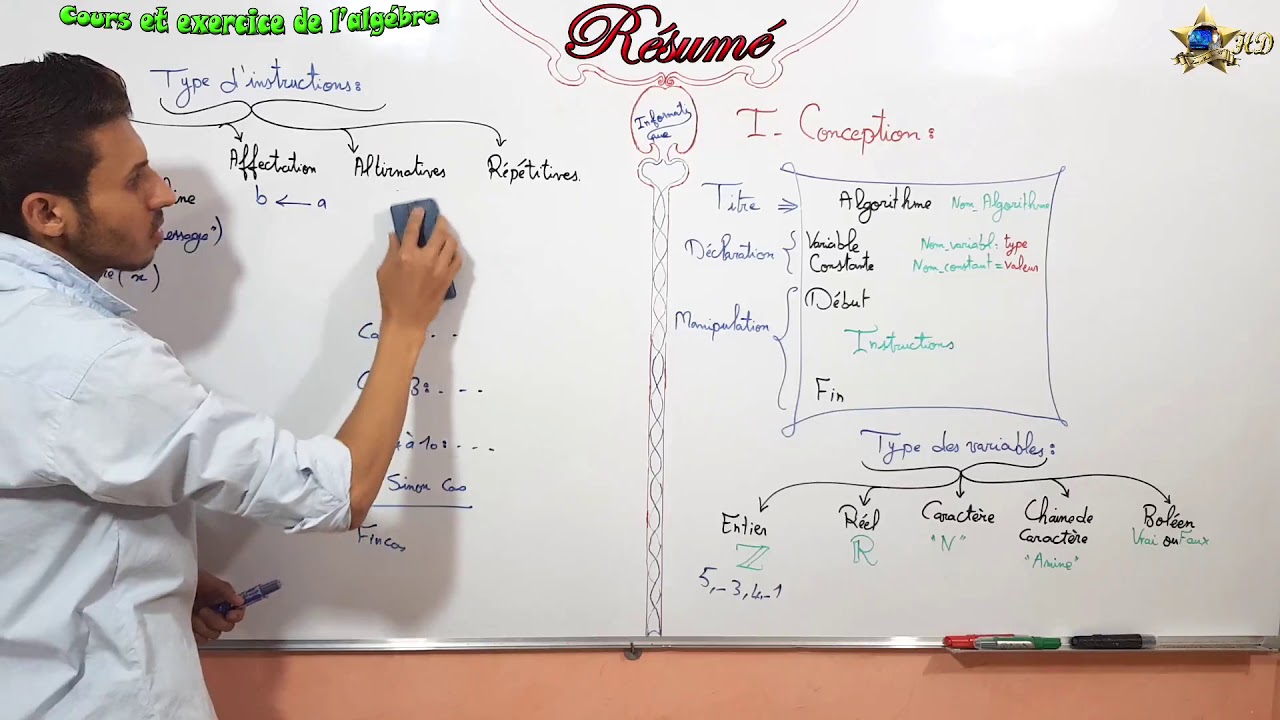 Cours et exercice de l'algébre
Résumé
HD
Type d'instructions:
Affectation
Altirnatives
Répétitives.
b ← a
ine
essage")
re(x)
3: . - -
à 10: - . .
Sinon Cas
Fincas
Informati
que
I- Conception:
Titre ⇒
Algorithme Nom_Algorithme
Déclaration
Variable Nom_variabl: type
Constante Nom_constant = valeur
Manipulation
Début
Instructions
Fin
Type des variables:
Entier
Réel
Caractère
Chaine de
Caractère
Boléen
Vrai ou Faux
ℤ
ℝ
"N"
"Amine"
5, -3, 4, -1